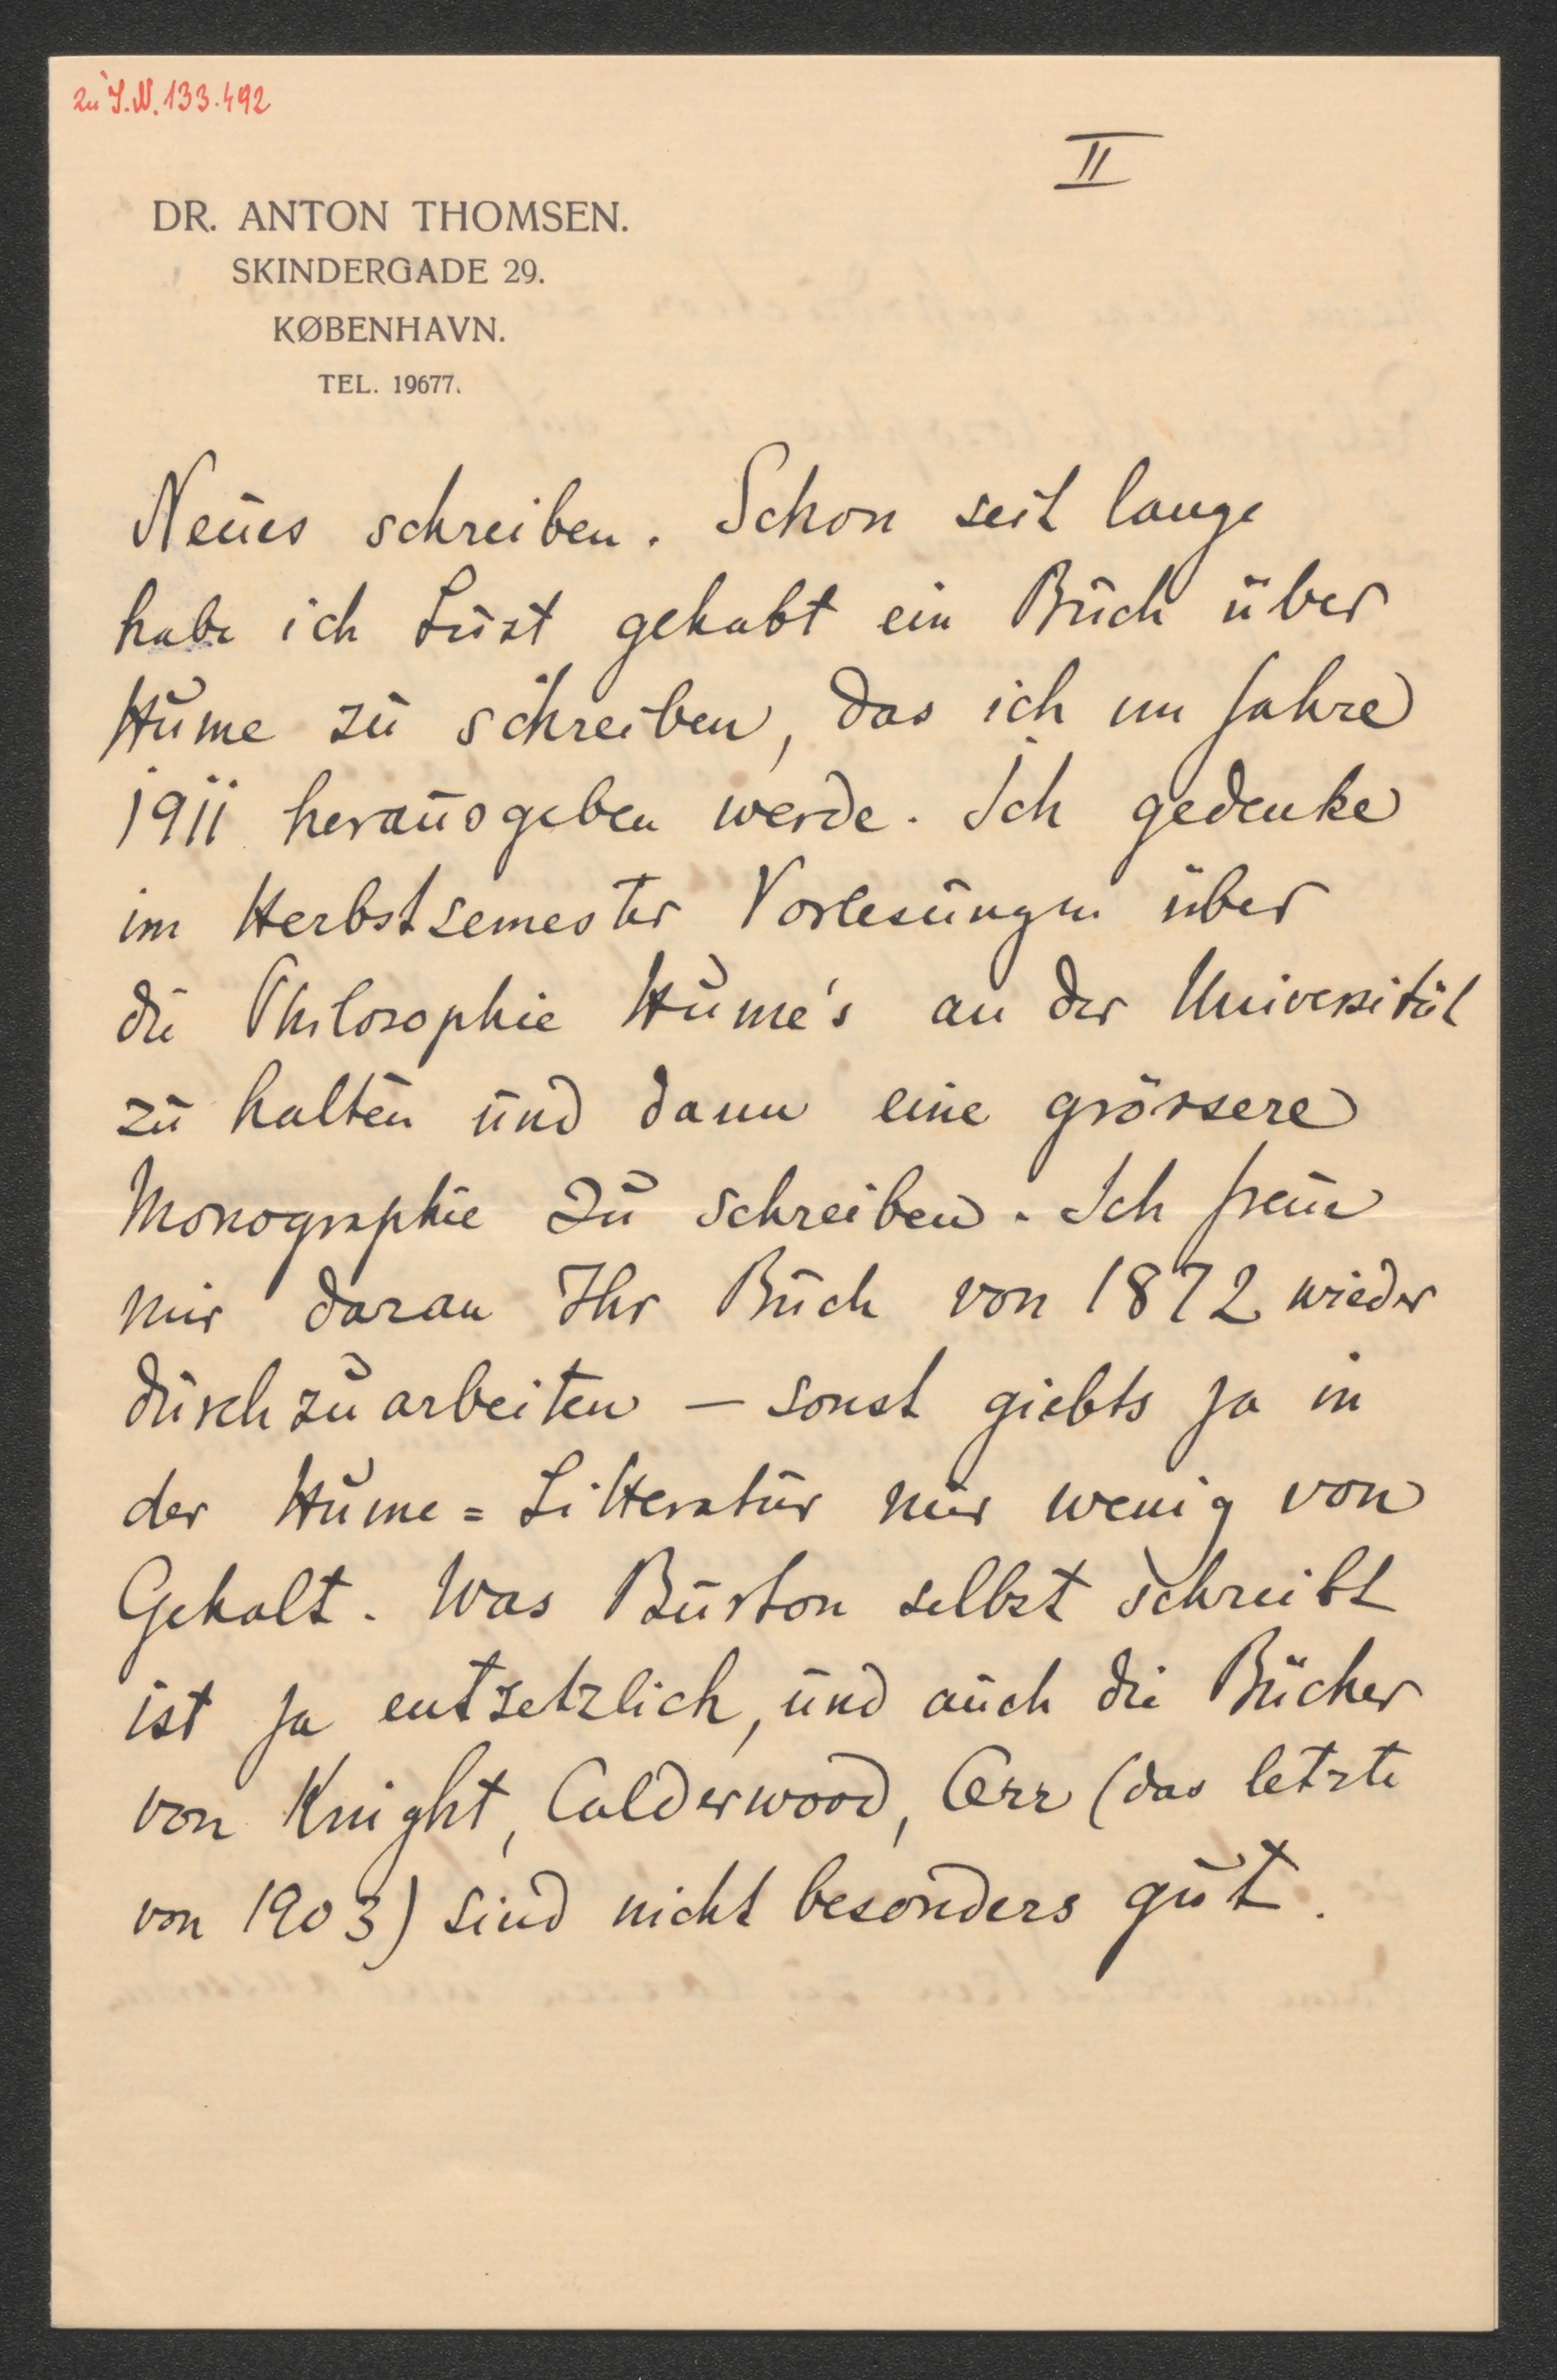 zu I.N. 133.492
II
DR. ANTON THOMSEN.
SKINDERGADE 29.
KØBENHAVN.
TEL. 19677.
Neues schreiben. Schon seit lange
habe ich Lust gehabt ein Buch über
Hume zu schreiben, das ich im Jahre
1911 herausgeben werde. Ich gedenke
im Herbstsemester Vorlesungen über
die Philosophie Hume's an der Universität
zu halten und dann eine grössere
Monographie zu schreiben. Ich freue
mir daran Ihr Buch von 1872 wieder
durchzuarbeiten – sonst giebts ja in
der Hume=Litteratur nur wenig von
Gehalt. Was Burton selbst schreibt
ist ja entsetzlich, und auch die Bücher
von Knight, Calderwood, Orr (das letzte
von 1903) sind nicht besonders gut.